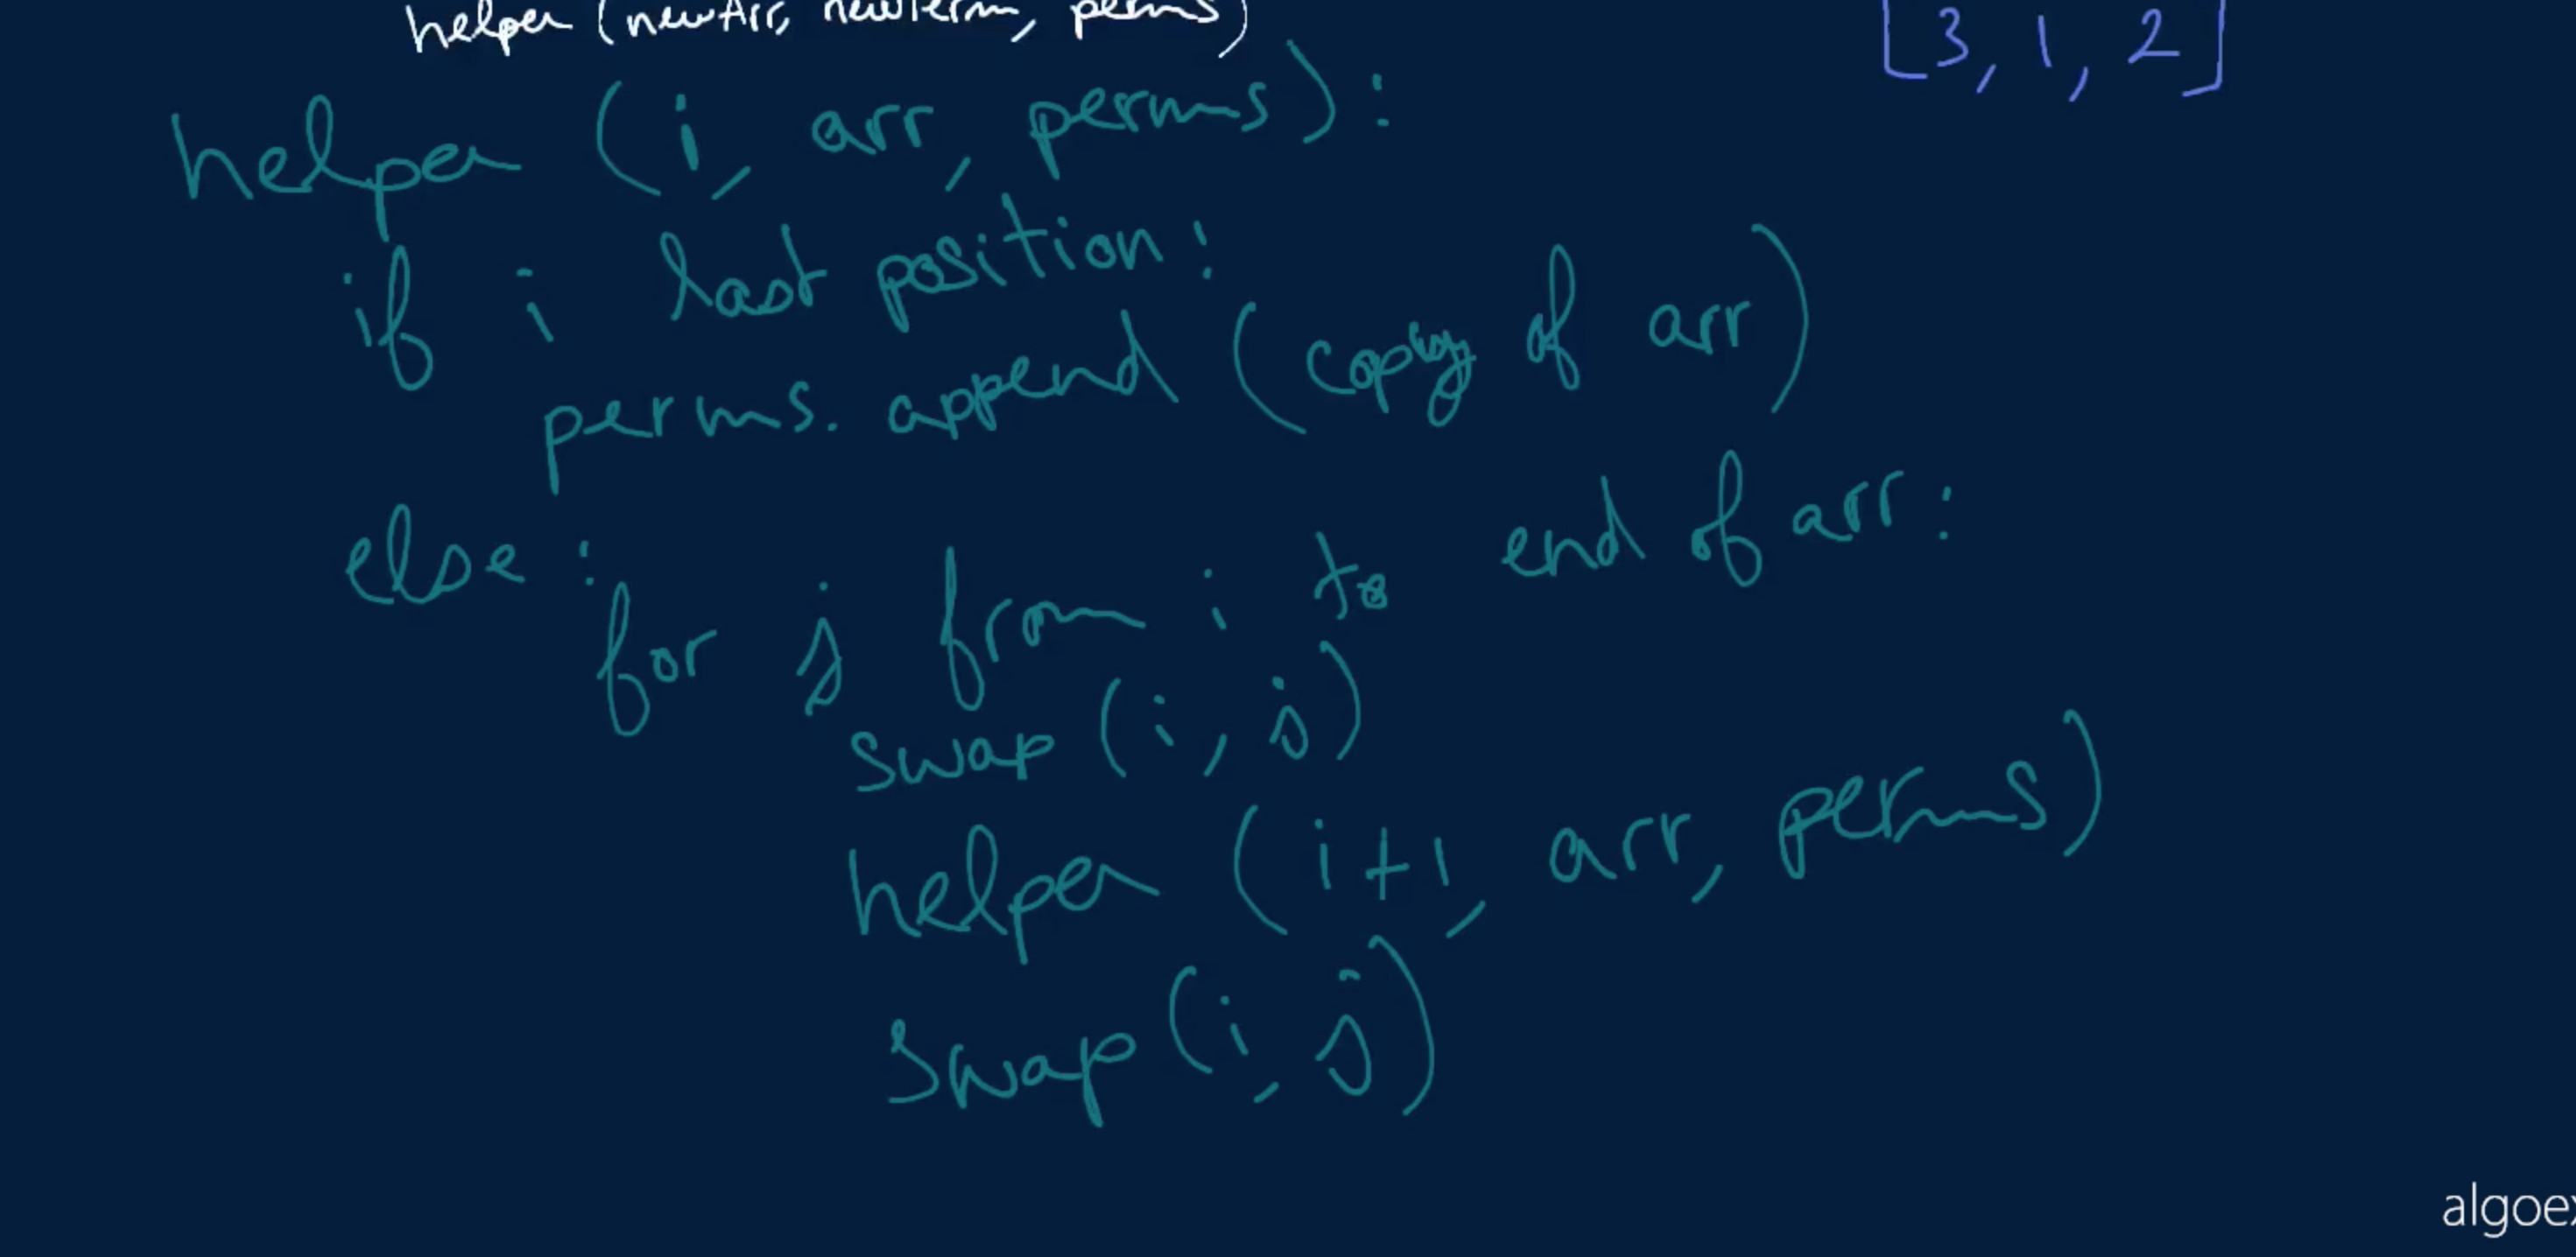 helper (newArr, newPerm, perms)
[3, 1, 2]
helper (i, arr, perms):
if i last position:
perms. append (copy of arr)
else:
for j from i to end of arr:
swap (i, j)
helper (i+1, arr, perms)
swap (i, j)
algoex